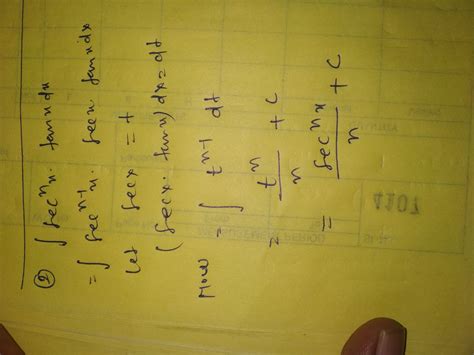 ② ∫ secⁿx. tanx dx
= ∫ secⁿ⁻¹x. secx tanx dx
Let secx = t
(secx. tanx) dx = dt
Now = ∫ tⁿ⁻¹ dt
= tⁿ/n + c
= secⁿx/n + c
4107